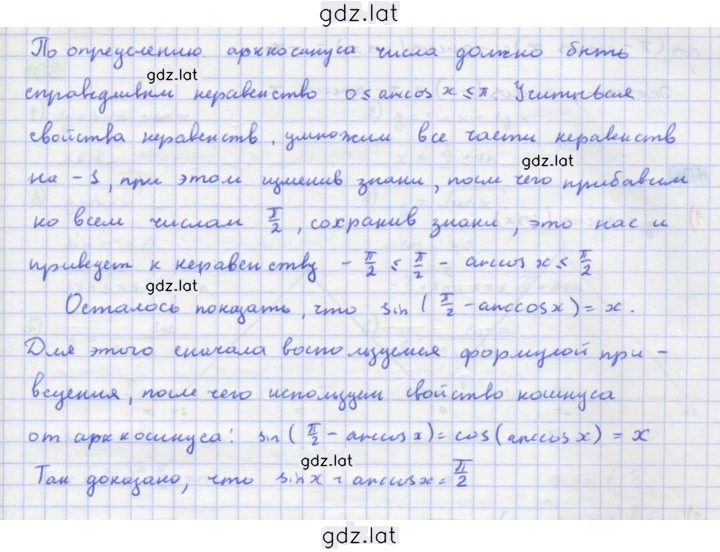 gdz.lat
По определению арккосинуса числа должно быть
gdz.lat
справедливым неравенство 0 ≤ arccos x ≤ π. Учитывая
свойства неравенств, умножим все части неравенств
gdz.lat
на -1, при этом изменив знаки, после чего прибавим
ко всем числам π/2, сохранив знаки, это нас и
приведет к неравенству -π/2 ≤ π/2 - arccos x ≤ π/2
gdz.lat
Осталось показать, что sin(π/2 - arccos x) = x.
Для этого сначала воспользуемся формулой при-
gdz.lat
ведения, после чего используем свойство косинуса
от арккосинуса: sin(π/2 - arccos x) = cos(arccos x) = x
gdz.lat
Так доказано, что sin x + arccos x = π/2
gdz.lat